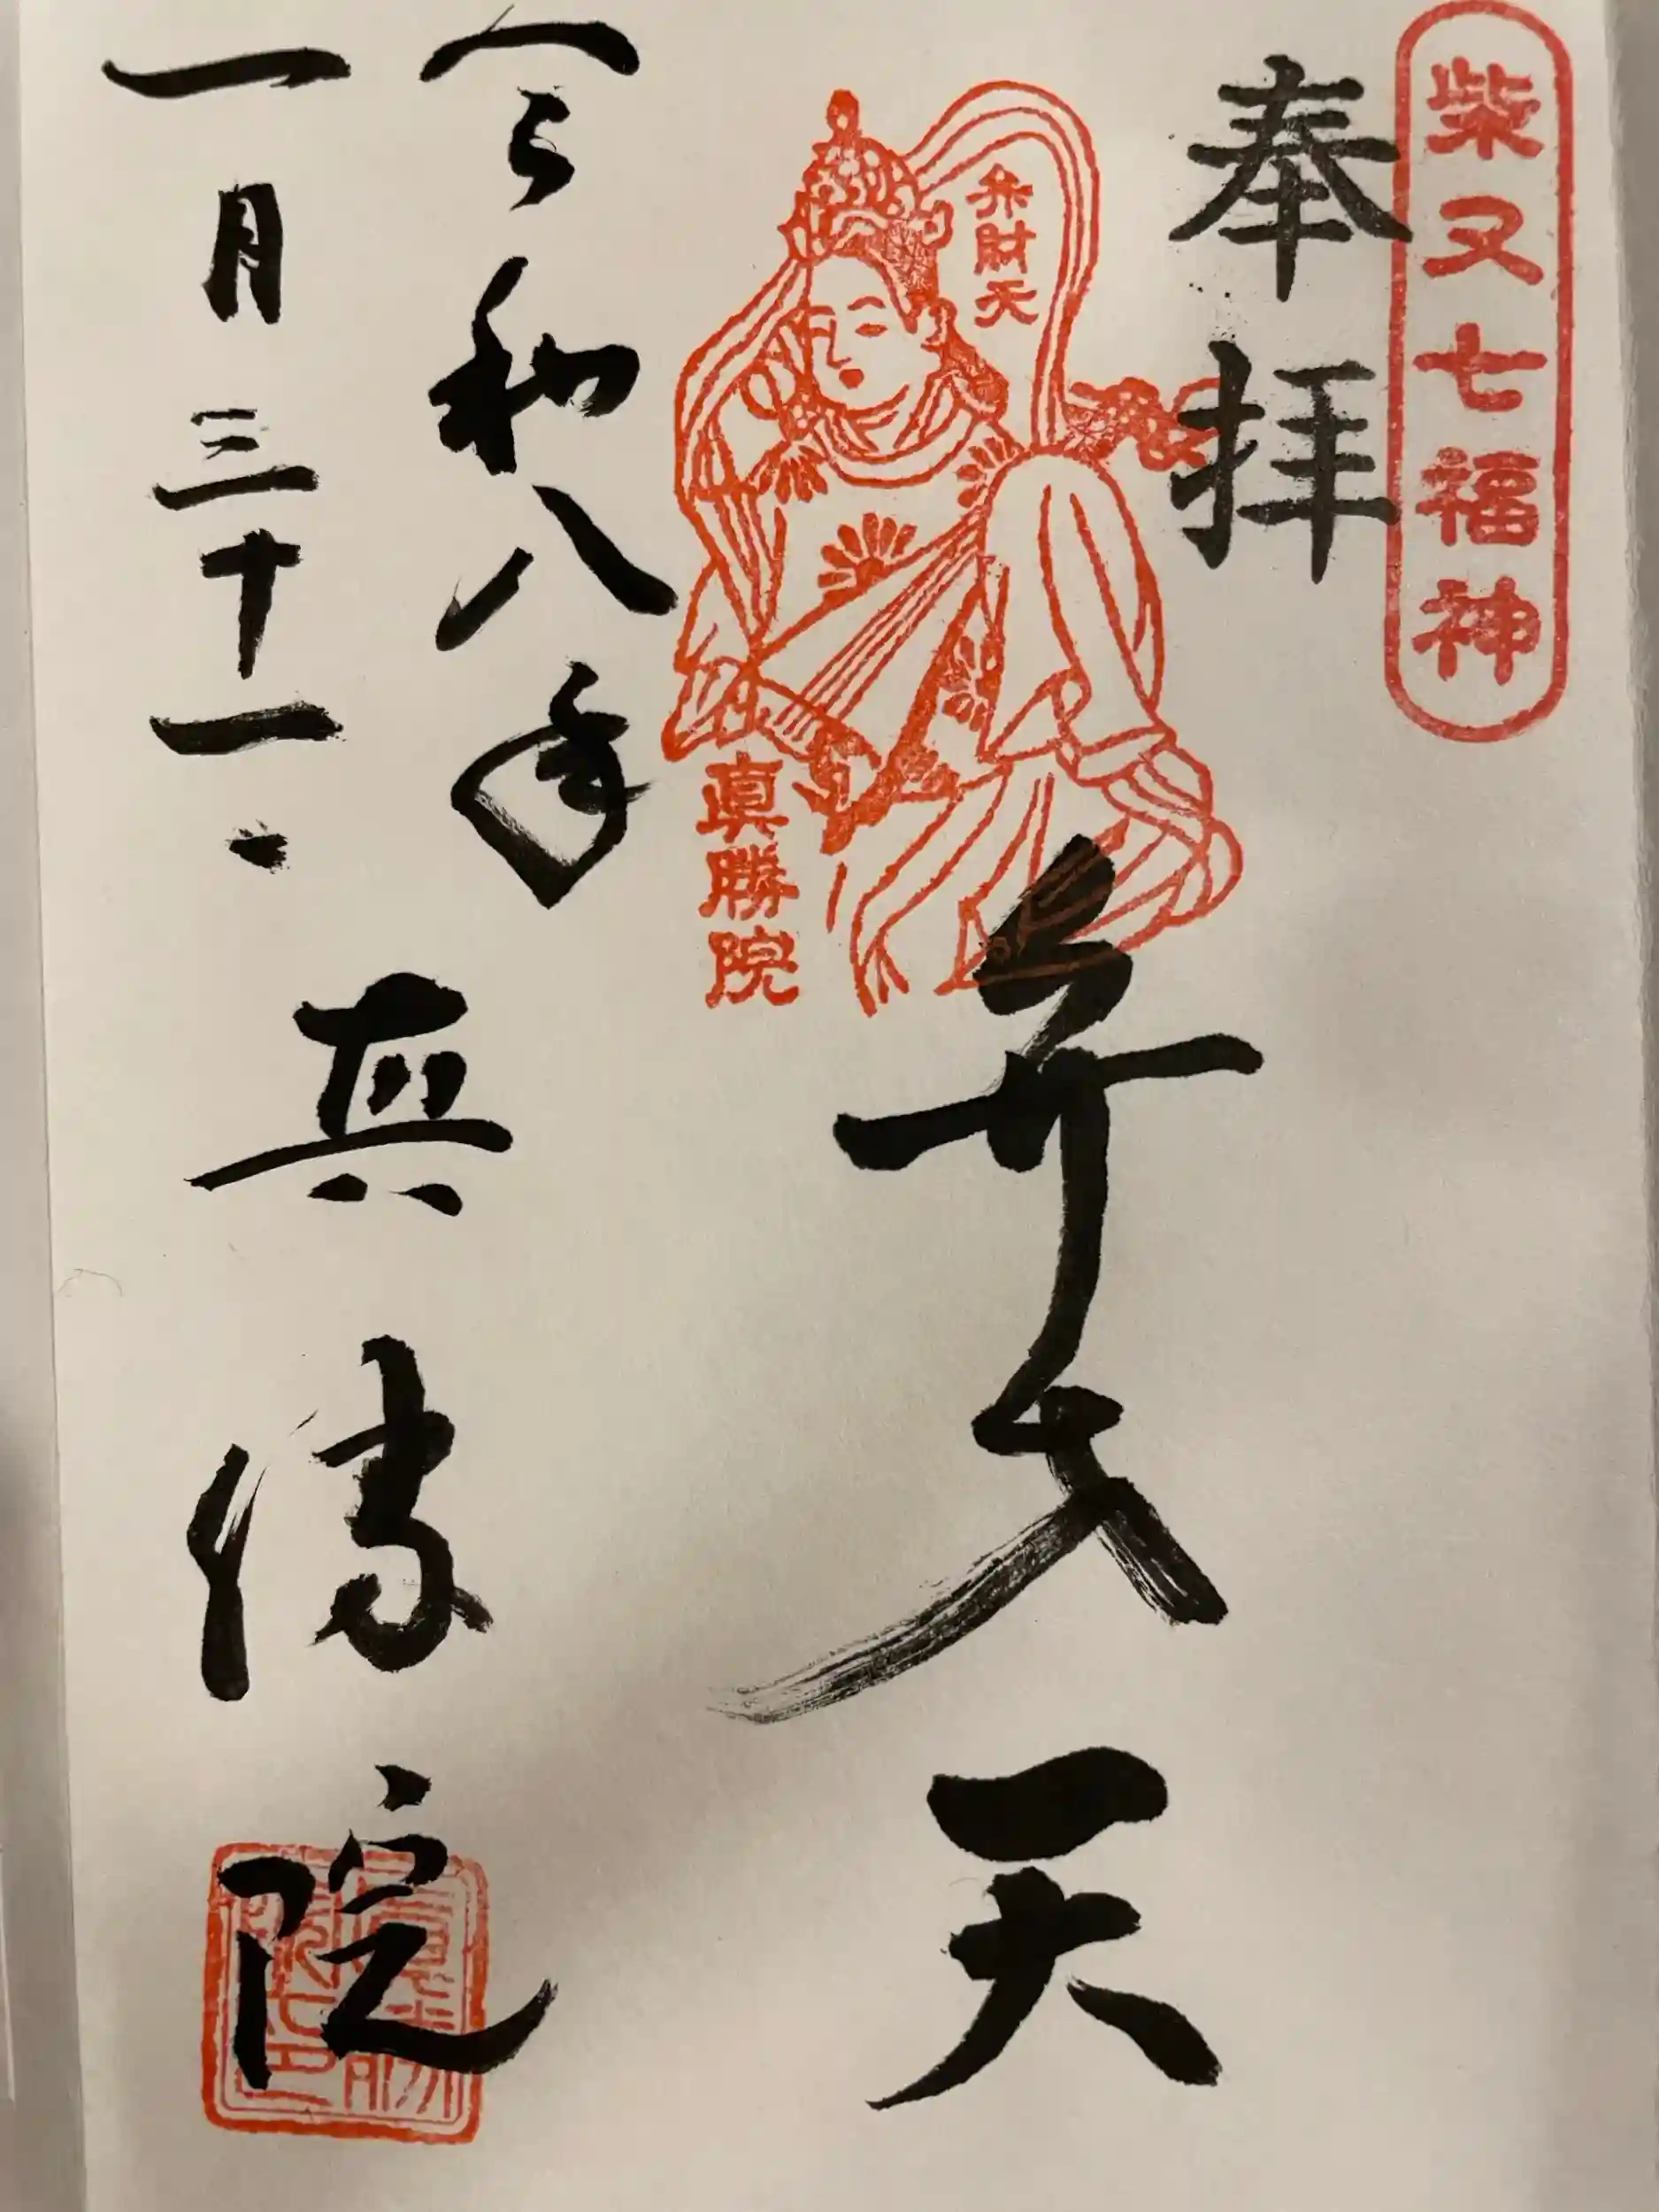 柴又七福神
奉拝
弁財天
弁才天
眞勝院
令和八年
一月三十一日
眞勝院